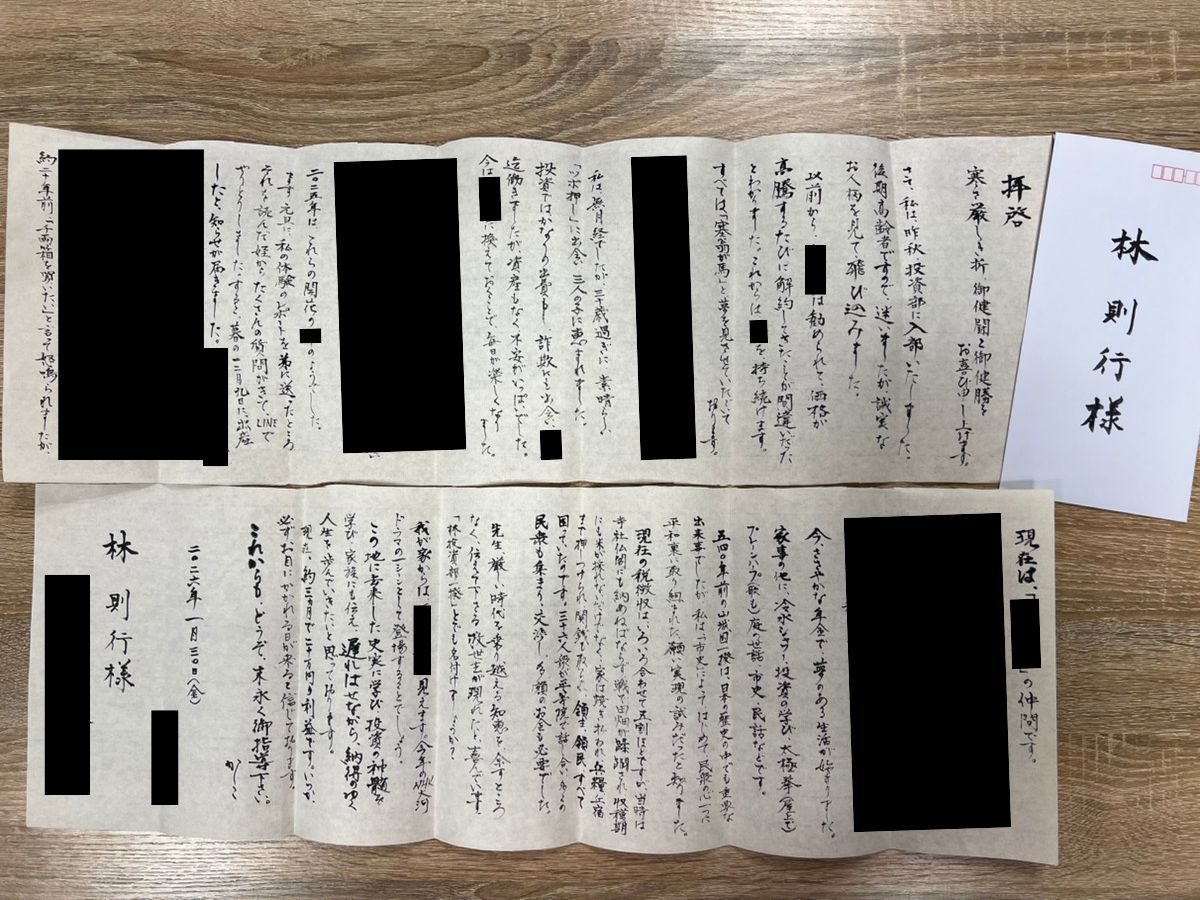 拝啓
寒さ厳しき折 御健闘と御健勝を
お喜び申し上げます。
さて、私は、昨秋、投資部に入部いたしました。
後期高齢者ですので、迷いましたが、誠実な
お人柄を見て、飛び込みました。
以前から、
は勧められて、価格が
高騰するたびに解約してきたことが間違いだった
とわかりました。これからは
を持ち続けます。
すべては「塞翁が馬」と夢を見させていただいて
おります。
私は、無月経でしたが、三十歳過ぎに、素晴らしい
「ツボ押し」に出会い、三人の子に恵まれました。
投資ではかなりの出費もし、詐欺にも出会い、
迄働きましたが資産もなく不安がいっぱいでした。
今は
に換えておくことで、毎日が楽しくなり
ました。
二〇二五年は、これらの開花の
のようでした。
ます、元旦に、私の体験のレポートを弟に送ったところ
それを読んだ姪から、たくさんの質問がきて、LINEで
やりとりしました。すると、暮の十二月九日に出産
したと、知らせが届きました。
納
十年前「千両箱を買いたい」と言って怒鳴られましたが、
現在は、「
」の仲間です。
今、ささやかな年金で、夢のある生活が始まりました。
家事の他に、冷水シャワー、投資の学び、太極拳(屋上で)
ブルースハープ(歌も)、庭の世話・市史・民話などです。
五四〇年前の山城国一揆は、日本の歴史の中でも重要な
出来事でしたが、私は「市史」によって、はじめて、民衆の心一つに
平和裏に取り組まれた、願い実現の試みだったと知りました。
現在の税徴収は、いろいろ合わせて五割ほどですが、当時は
寺社仏閣にも納めねばならず、戦で田畑が踏躙され、収穫期
にも米が採れないだけでなく、家は焼き払われ、兵糧、兵宿
まで押しつけられ、関銭も取られ、領主、領民、すべて
困っていたのです。三十六人衆が平等院で話し合い、多くの
民衆も集まり、交渉し、多額のお金も必要でした。
先生、厳しい時代を乗り越える知恵を、余すところ
なく、伝えて下さる救世主が現れたと、喜んでいます。
「林投資部一揆」とでも名付けましょうか?
我が家からは、
見えます。今年のNHK大河
ドラマの一シーンとして登場することでしょう。
この地に去来した史実に学び、投資の神髄を
学び、家族にも伝え、遅ればせながら、納得のゆく
人生を歩んでいきたいと思っております。
現在、約三ヵ月で二十万円の利益です。いつか、
必ずお目にかかれる日が来ると信じております。
これからも、どうぞ、末永く御指導下さい。
かしこ
二〇二六年一月三〇日(金)
林 則行様
林 則行 様